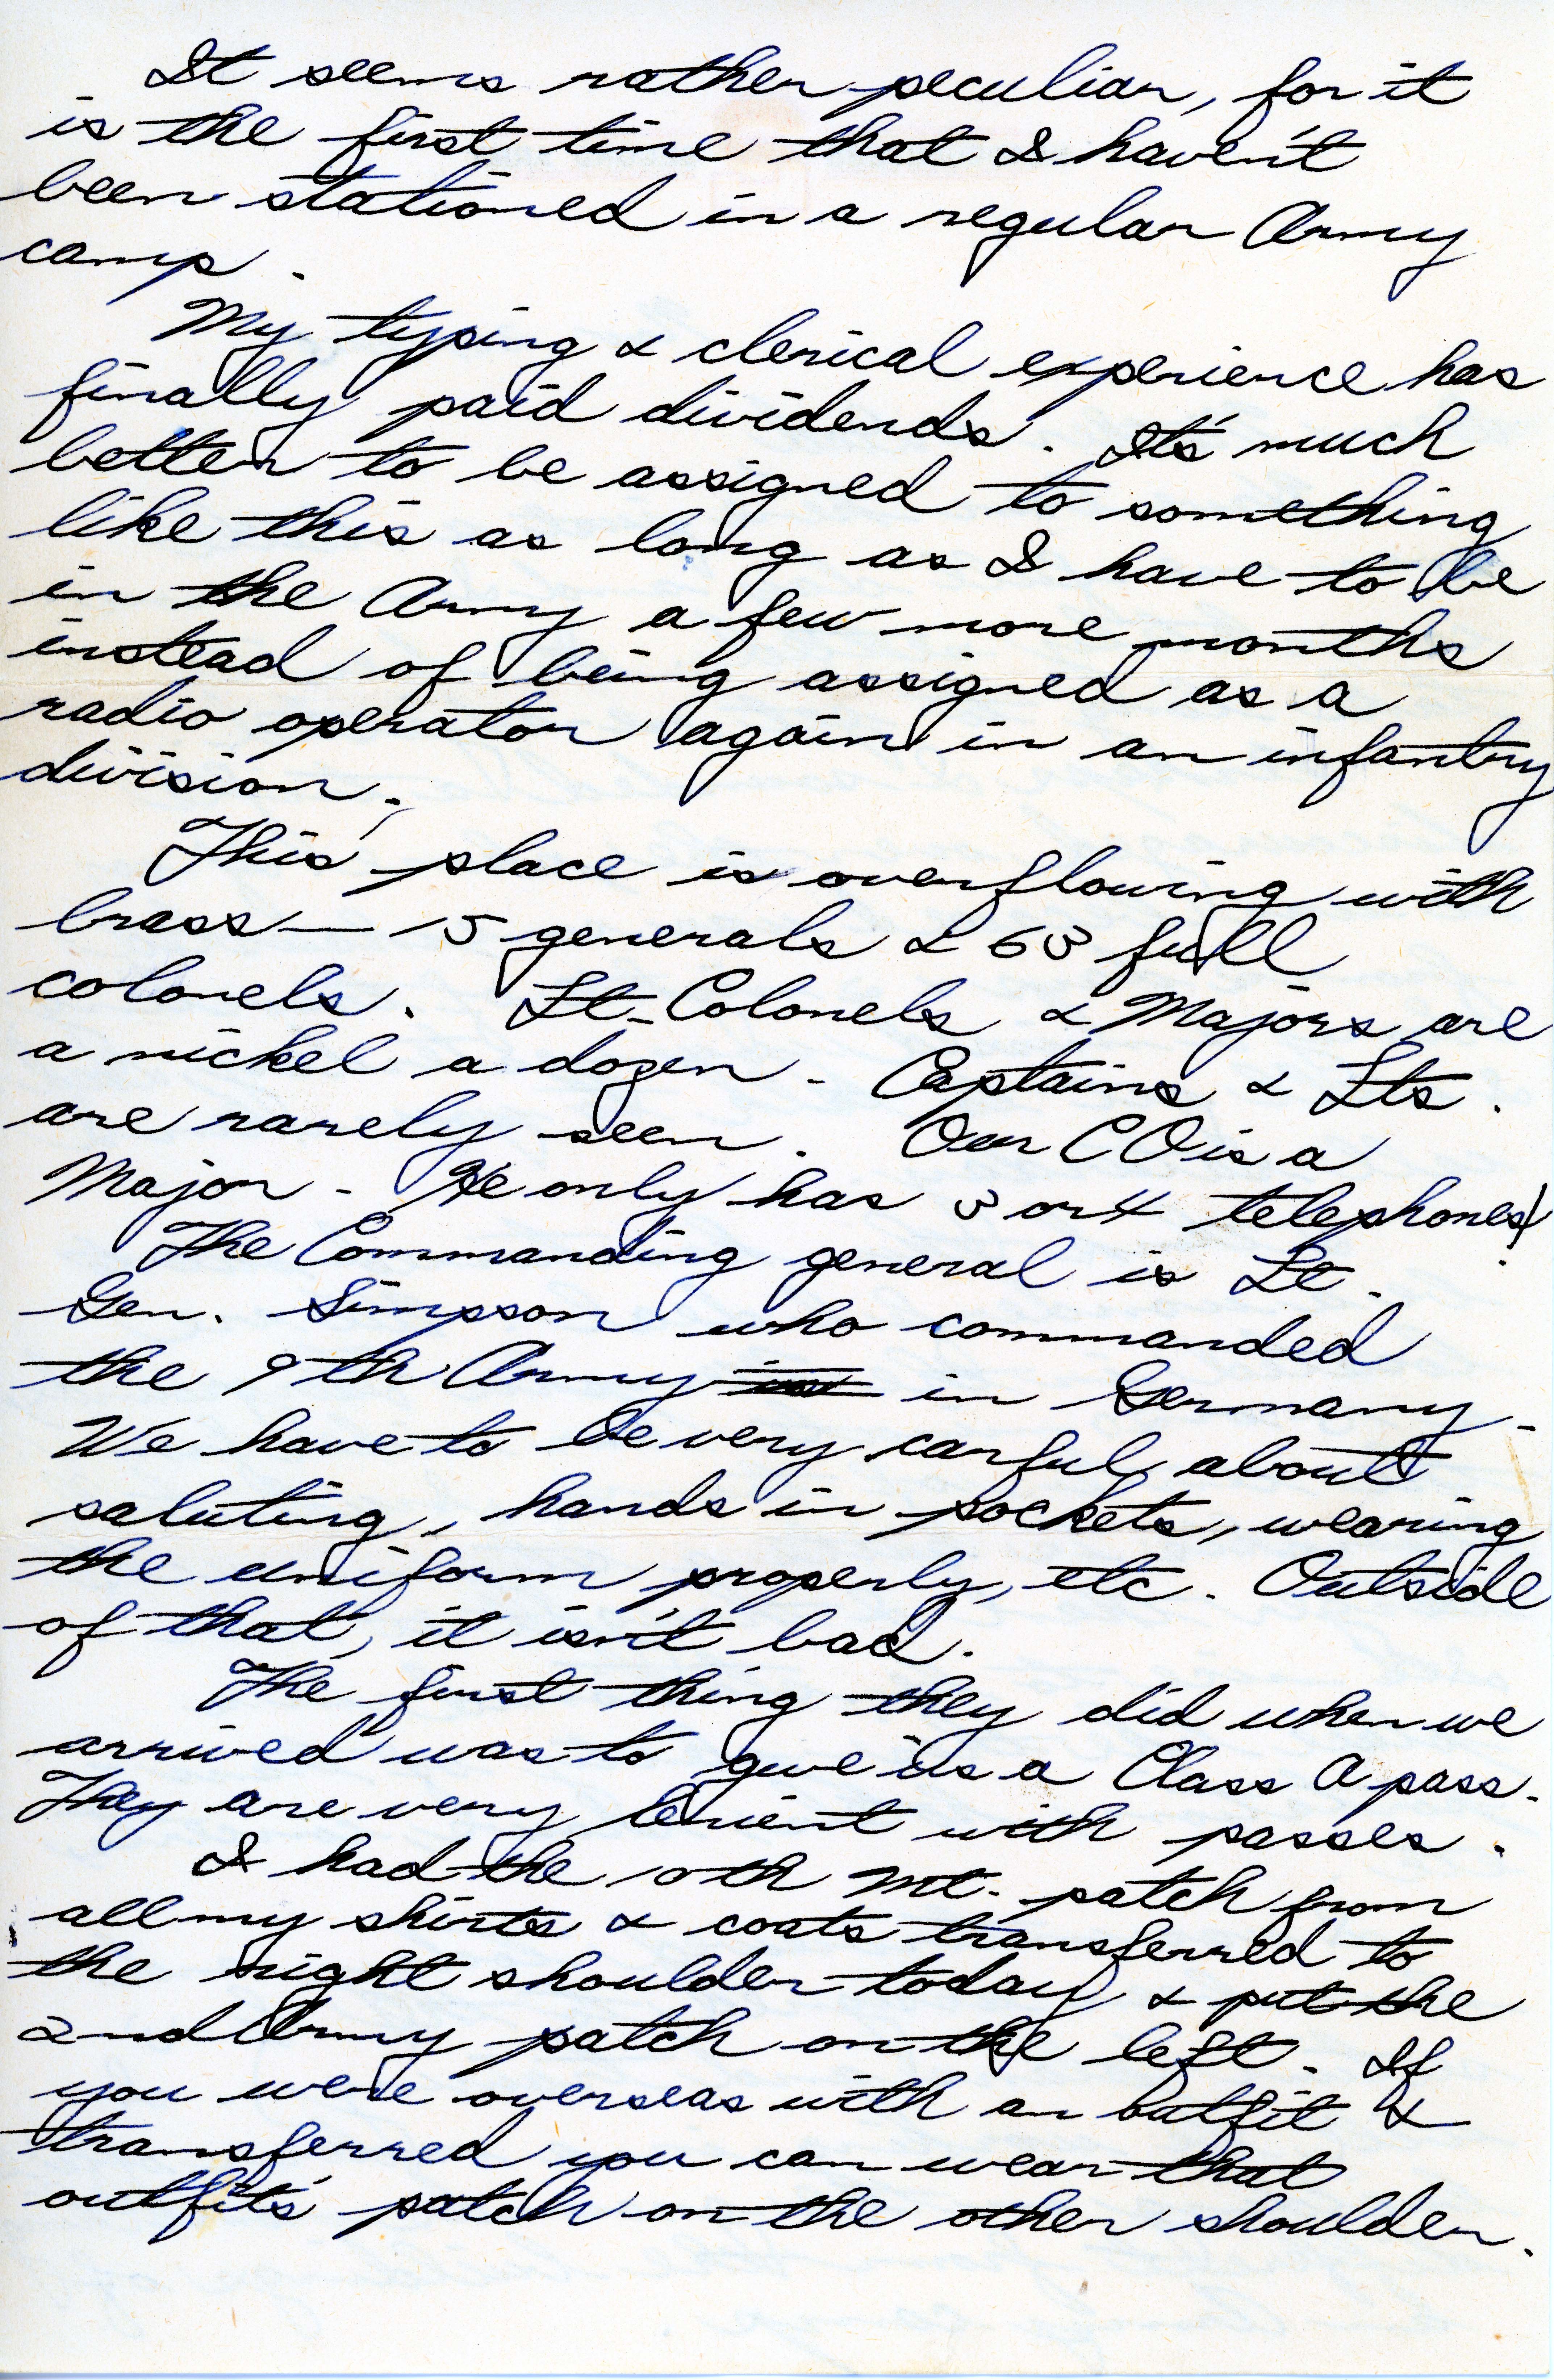 It seems rather peculiar, for it
is the first time that I haven't
been stationed in a regular Army
camp.
My typing & clerical experience has
finally paid dividends. It's much
better to be assigned to something
like this as long as I have to be
in the Army a few more months
instead of being assigned as a
radio operator again in an infantry
division.
This place is overflowing with
brass — 15 generals & 63 full
colonels. Lt. Colonels & Majors are
a nickel a dozen. Captains & Lts.
are rarely seen. Our CO is a
Major. He only has 3 or 4 telephones!
The Commanding general is Lt.
Gen. Simpson who commanded
the 9th Army in Germany.
We have to be very carful about
saluting, hands in pockets, wearing
the uniform properly, etc. Outside
of that, it isn't bad.
The first thing they did when we
arrived was to give us a Class A pass.
They are very lenient with passes.
I had the 10th Mt. patch from
all my shirts & coats transferred to
the right shoulder today & put the
2nd Army patch on the left. If
you were overseas with an outfit &
transferred you can wear that
outfit's patch on the other shoulder.